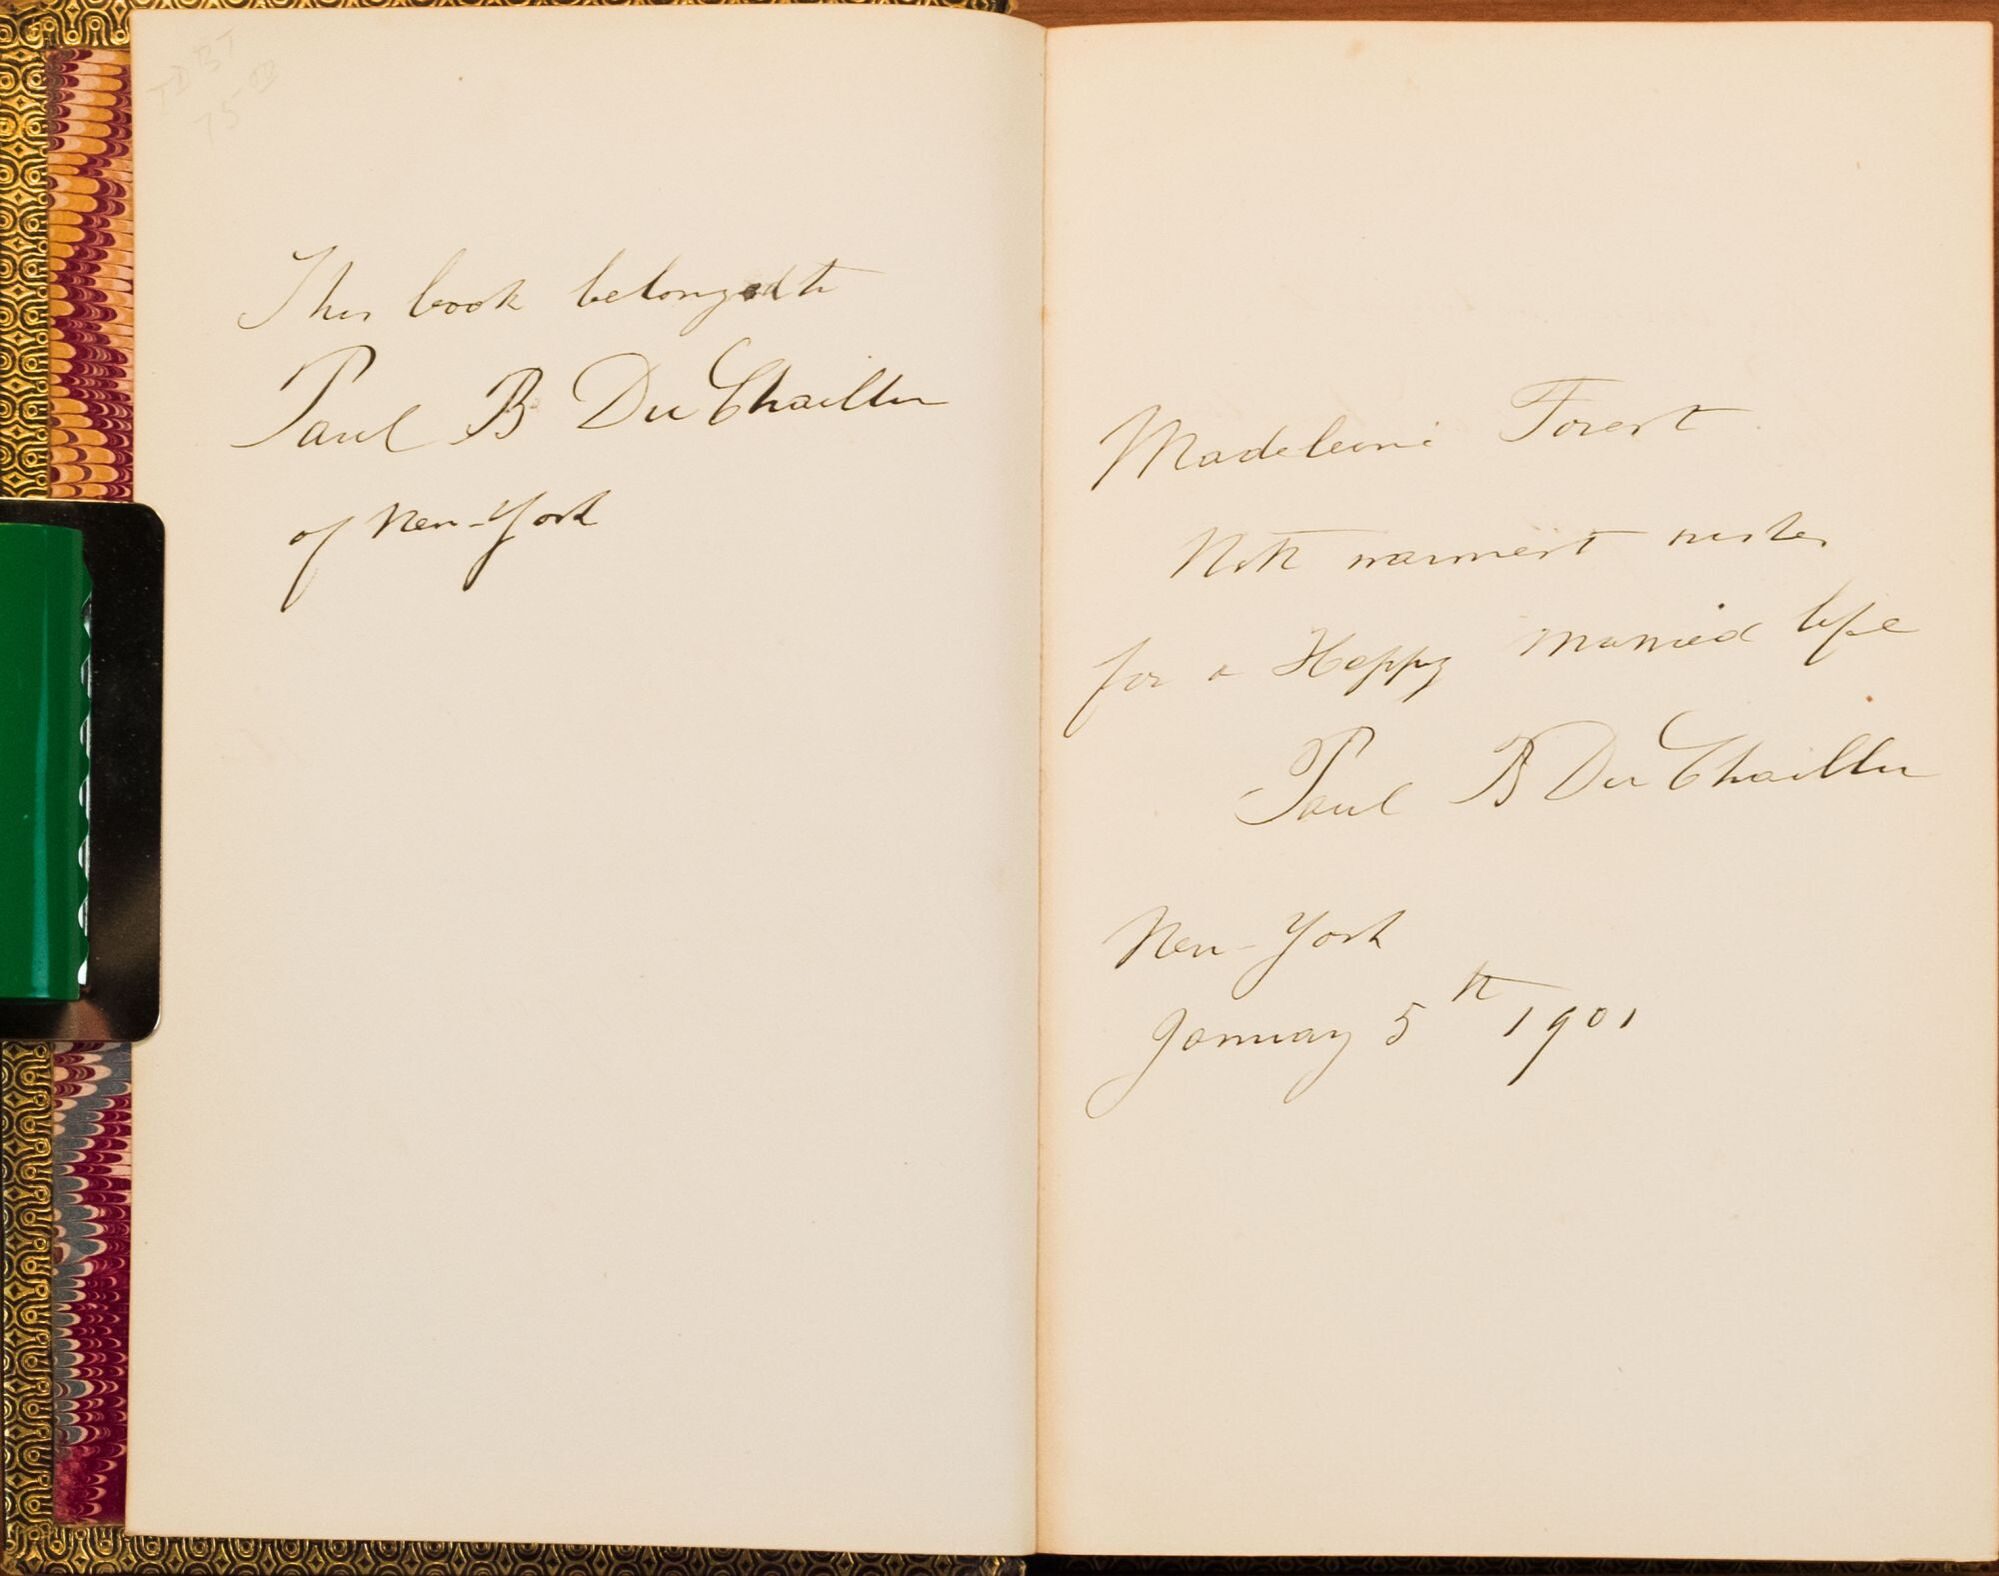 This book belonged to
Paul B Du Chaillu
of New-York
Madeleine Forest
With warmest wishes
for a Happy married life
Paul B Du Chaillu
New-York
January 5th 1901